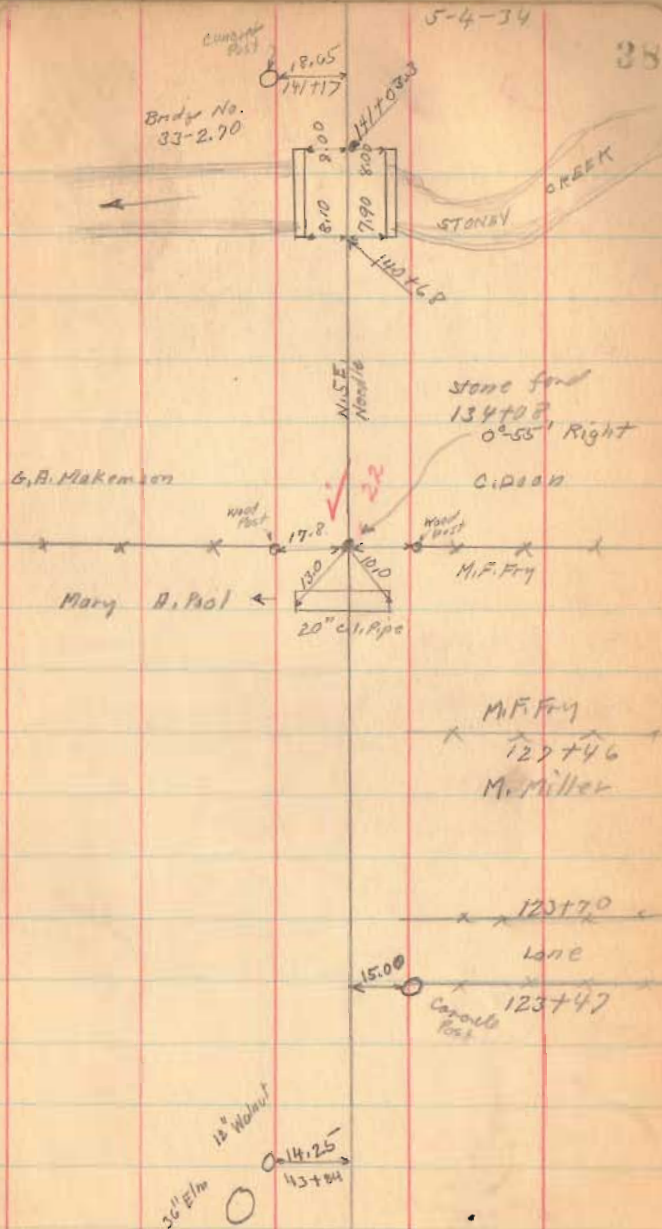 5-4-34
38
Concrete
Post
18.65
141+17
141+03.3
Bridge No.
33-2.70
8.00
8.00
CREEK
STONEY
8.10
7.90
140+68
N.5E.
Needle
stone fond
134+08
0°-55' Right
G.A. Makemson
C. Doan
22
Wood
Post
17.8
Wood
Post
M.F. Fry
13.0
10.0
Mary A. Pool
20" C.I. Pipe
M.F. Fry
127+46
M. Miller
123+70
Lane
15.00
123+47
Concrete
Post
12" Walnut
14.25
36" Elm